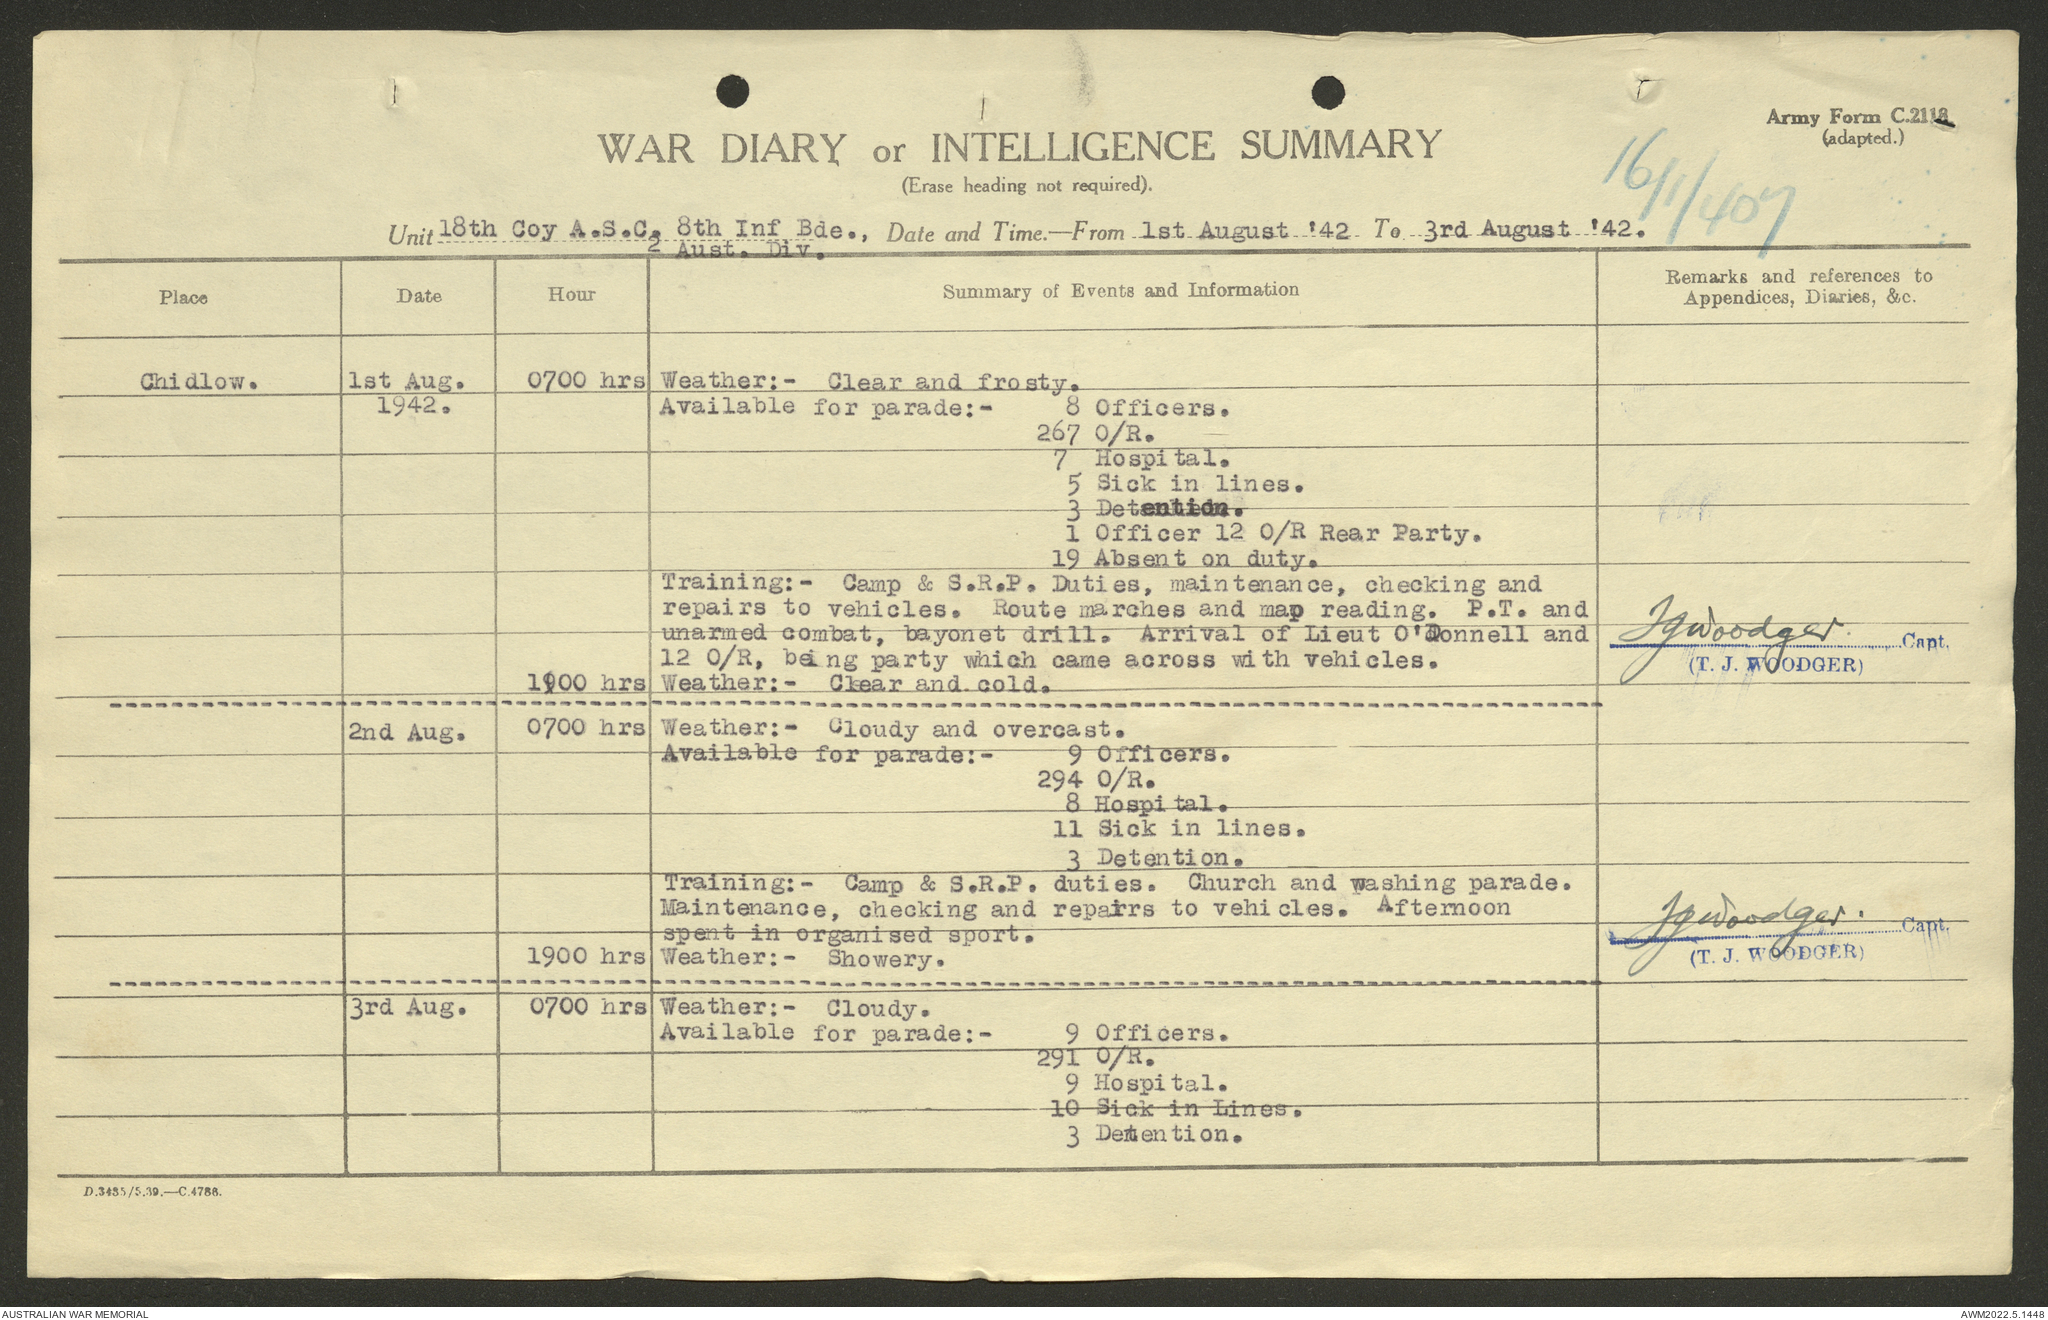 Army Form C.2118
(adapted.)
16/1/407
WAR DIARY or INTELLIGENCE SUMMARY
(Erase heading not required).
Unit 18th Coy A.S.C. 8th Inf Bde., Date and Time.—From 1st August '42 To 3rd August '42.
2 Aust. Div.
Place Date Hour Summary of Events and Information Remarks and references to Appendices, Diaries, &c.
Chidlow. 1st Aug. 0700 hrs Weather:- Clear and frosty.
1942. Available for parade:- 8 Officers.
267 O/R.
7 Hospital.
5 Sick in lines.
3 Detention.
1 Officer 12 O/R Rear Party.
19 Absent on duty.
Training:- Camp & S.R.P. Duties, maintenance, checking and
repairs to vehicles. Route marches and map reading. P.T. and
unarmed combat, bayonet drill. Arrival of Lieut O'Donnell and
12 O/R, being party which came across with vehicles.
TJWoodger. Capt.
(T. J. WOODGER)
1900 hrs Weather:- Clear and cold.
2nd Aug. 0700 hrs Weather:- Cloudy and overcast.
Available for parade:- 9 Officers.
294 O/R.
8 Hospital.
11 Sick in lines.
3 Detention.
Training:- Camp & S.R.P. duties. Church and washing parade.
Maintenance, checking and repairrs to vehicles. Afternoon
spent in organised sport.
TJWoodger. Capt.
(T. J. WOODGER)
1900 hrs Weather:- Showery.
3rd Aug. 0700 hrs Weather:- Cloudy.
Available for parade:- 9 Officers.
291 O/R.
9 Hospital.
10 Sick in Lines.
3 Detention.
D.3485/5.39.—C.4786.
AUSTRALIAN WAR MEMORIAL AWM2022.5.1448